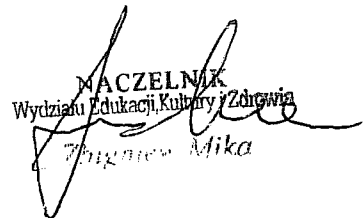 NACZELNIK
Wydziału Edukacji, Kultury i Zdrowia
Zbigniew Mika